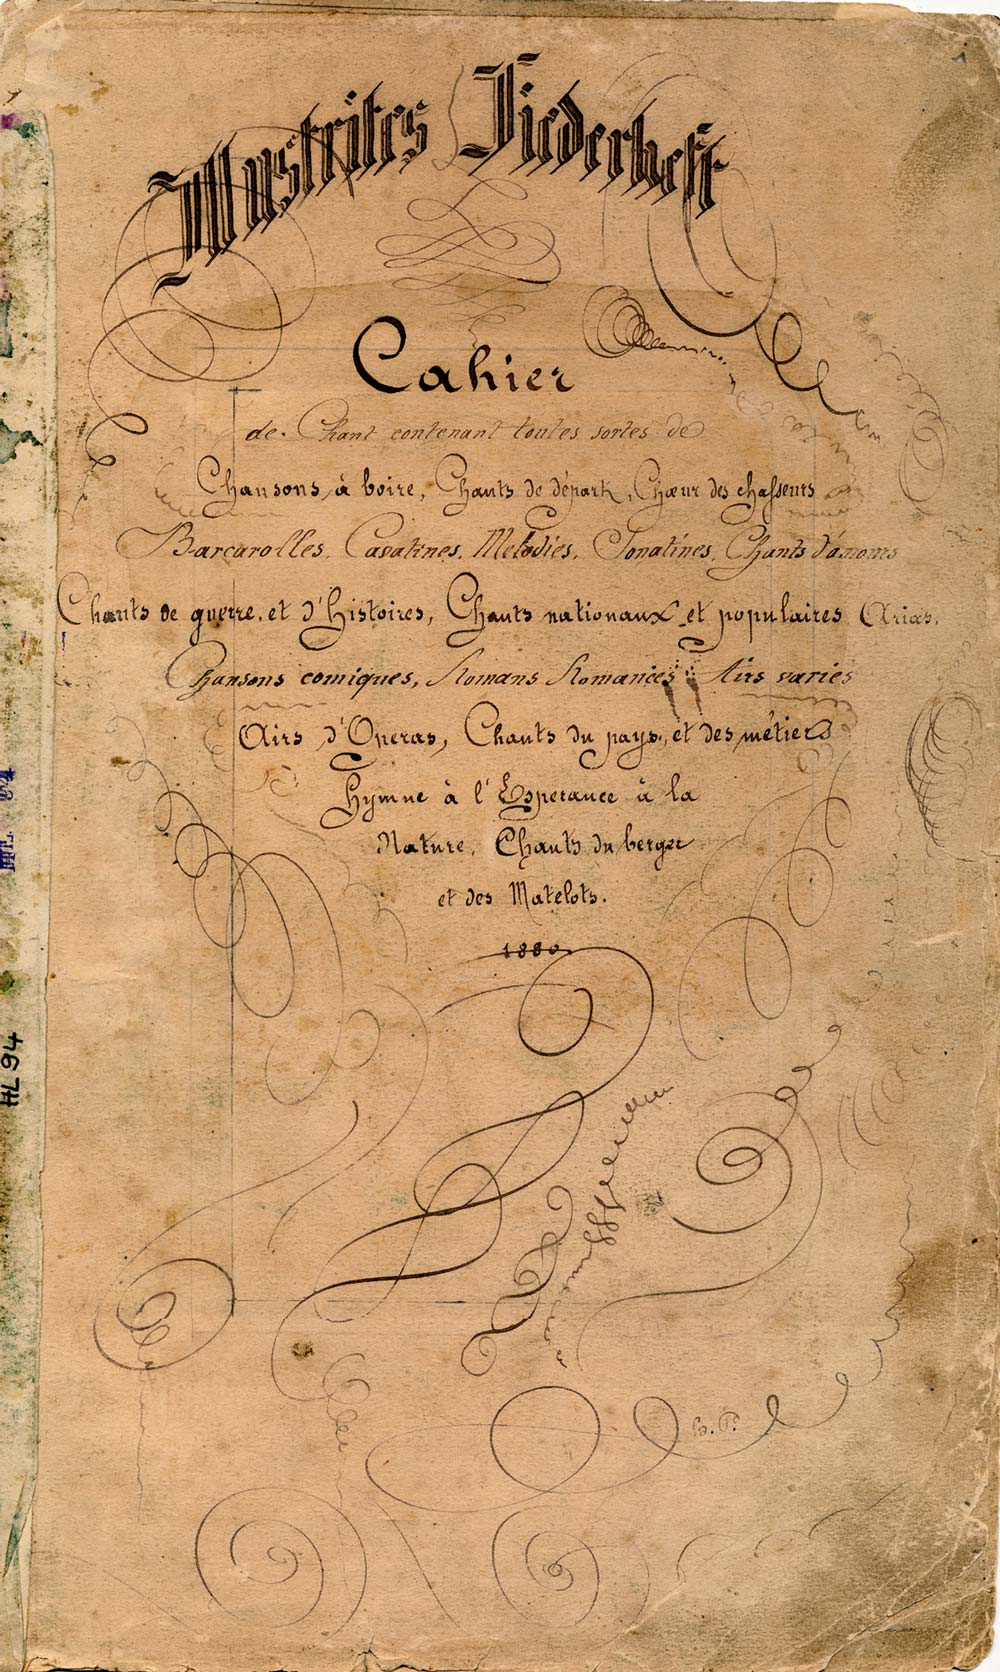 Illustrites Liederheft
Cahier
de Chant contenant toutes sortes de
Chansons à boire, Chants de départ, Chœur des chasseurs
Barcarolles, Cavatines, Melodies, Sonatines, Chants d'amours
Chants de guerre, et d'Histoires, Chants nationaux et populaires Arias.
Chansons comiques, Romans Romances Airs variés
Airs d'Operas, Chants du pays, et des métiers
Hymne à l'Esperance à la
Nature, Chants du berger
et des Matelots.
1880
HL 94
HL 94